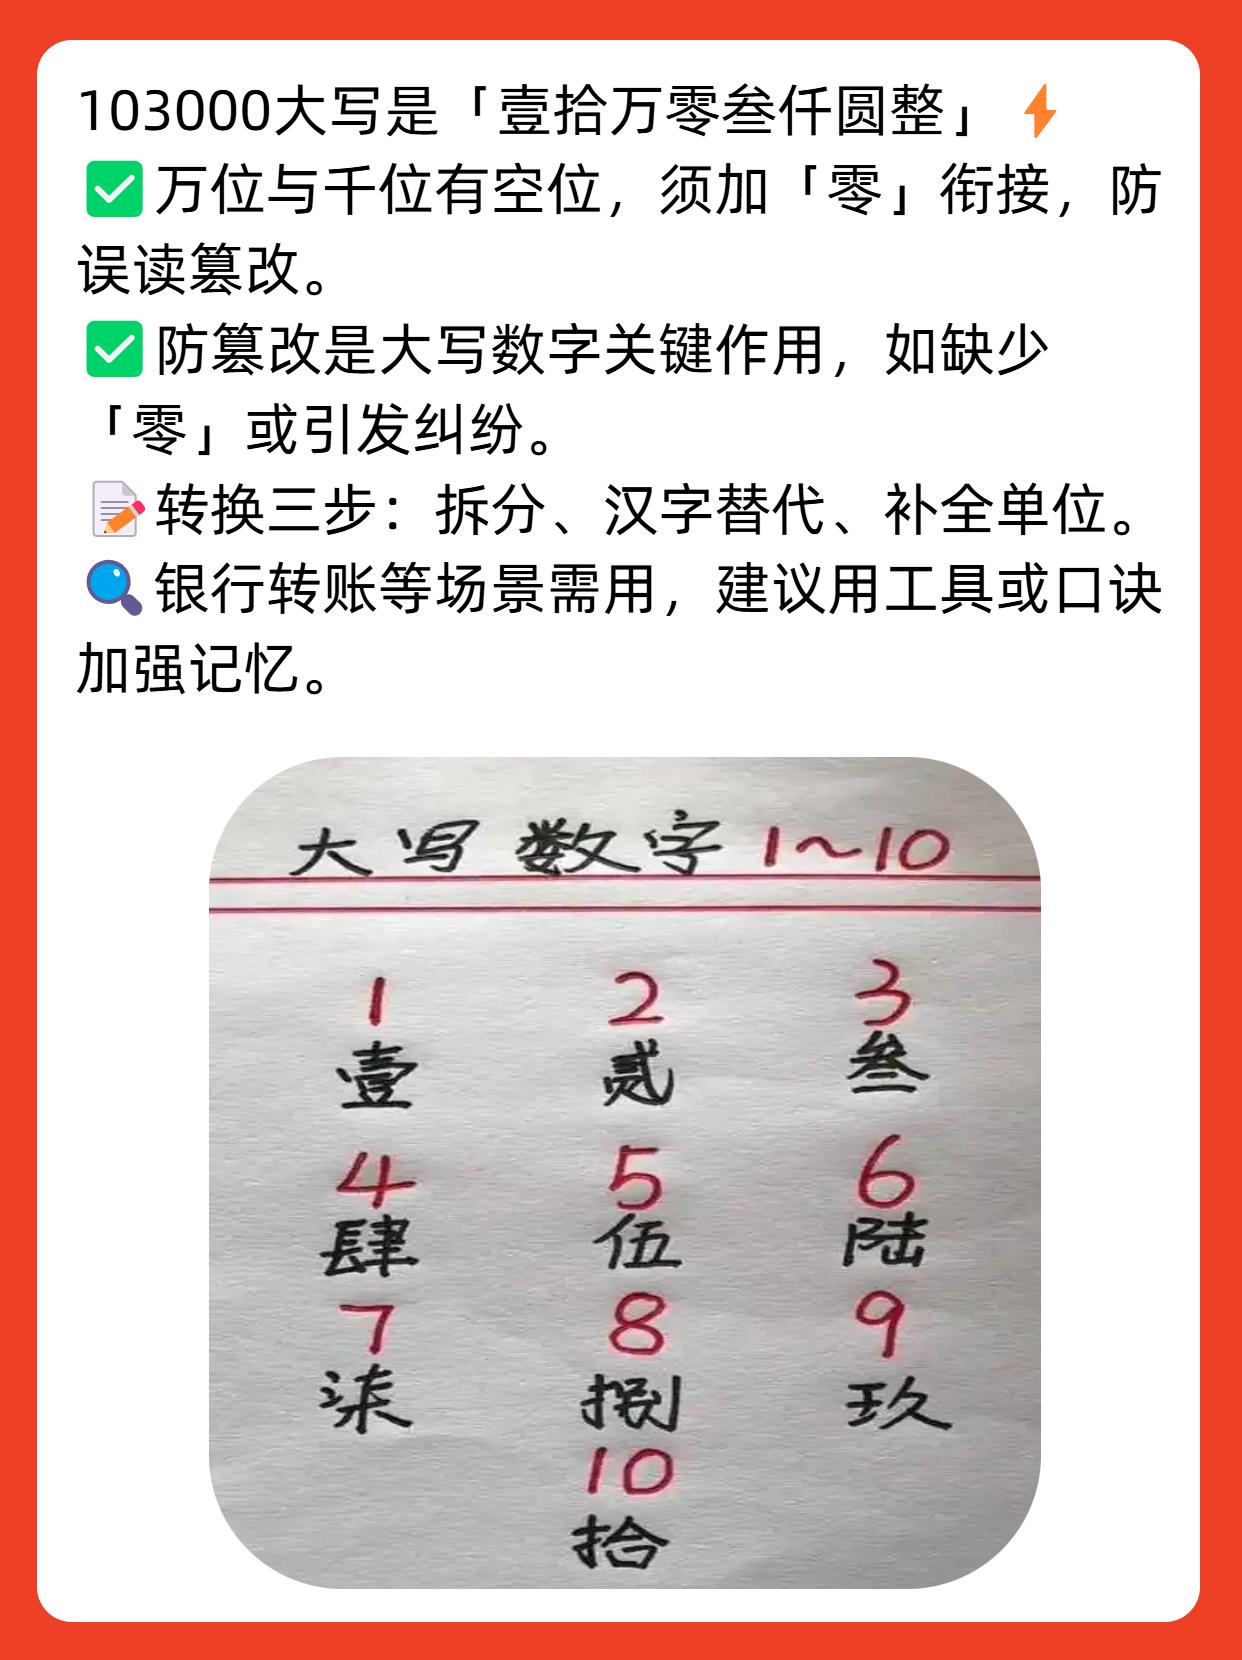 103000大写是「壹拾万零叁仟圆整」⚡
✅万位与千位有空位，须加「零」衔接，防
误读篡改。
✅防篡改是大写数字关键作用，如缺少
「零」或引发纠纷。
📝转换三步：拆分、汉字替代、补全单位。
🔍银行转账等场景需用，建议用工具或口诀
加强记忆。
大写数字1~10
1 2 3
壹 贰 叁
4 5 6
肆 伍 陆
7 8 9
柒 捌 玖
10
拾